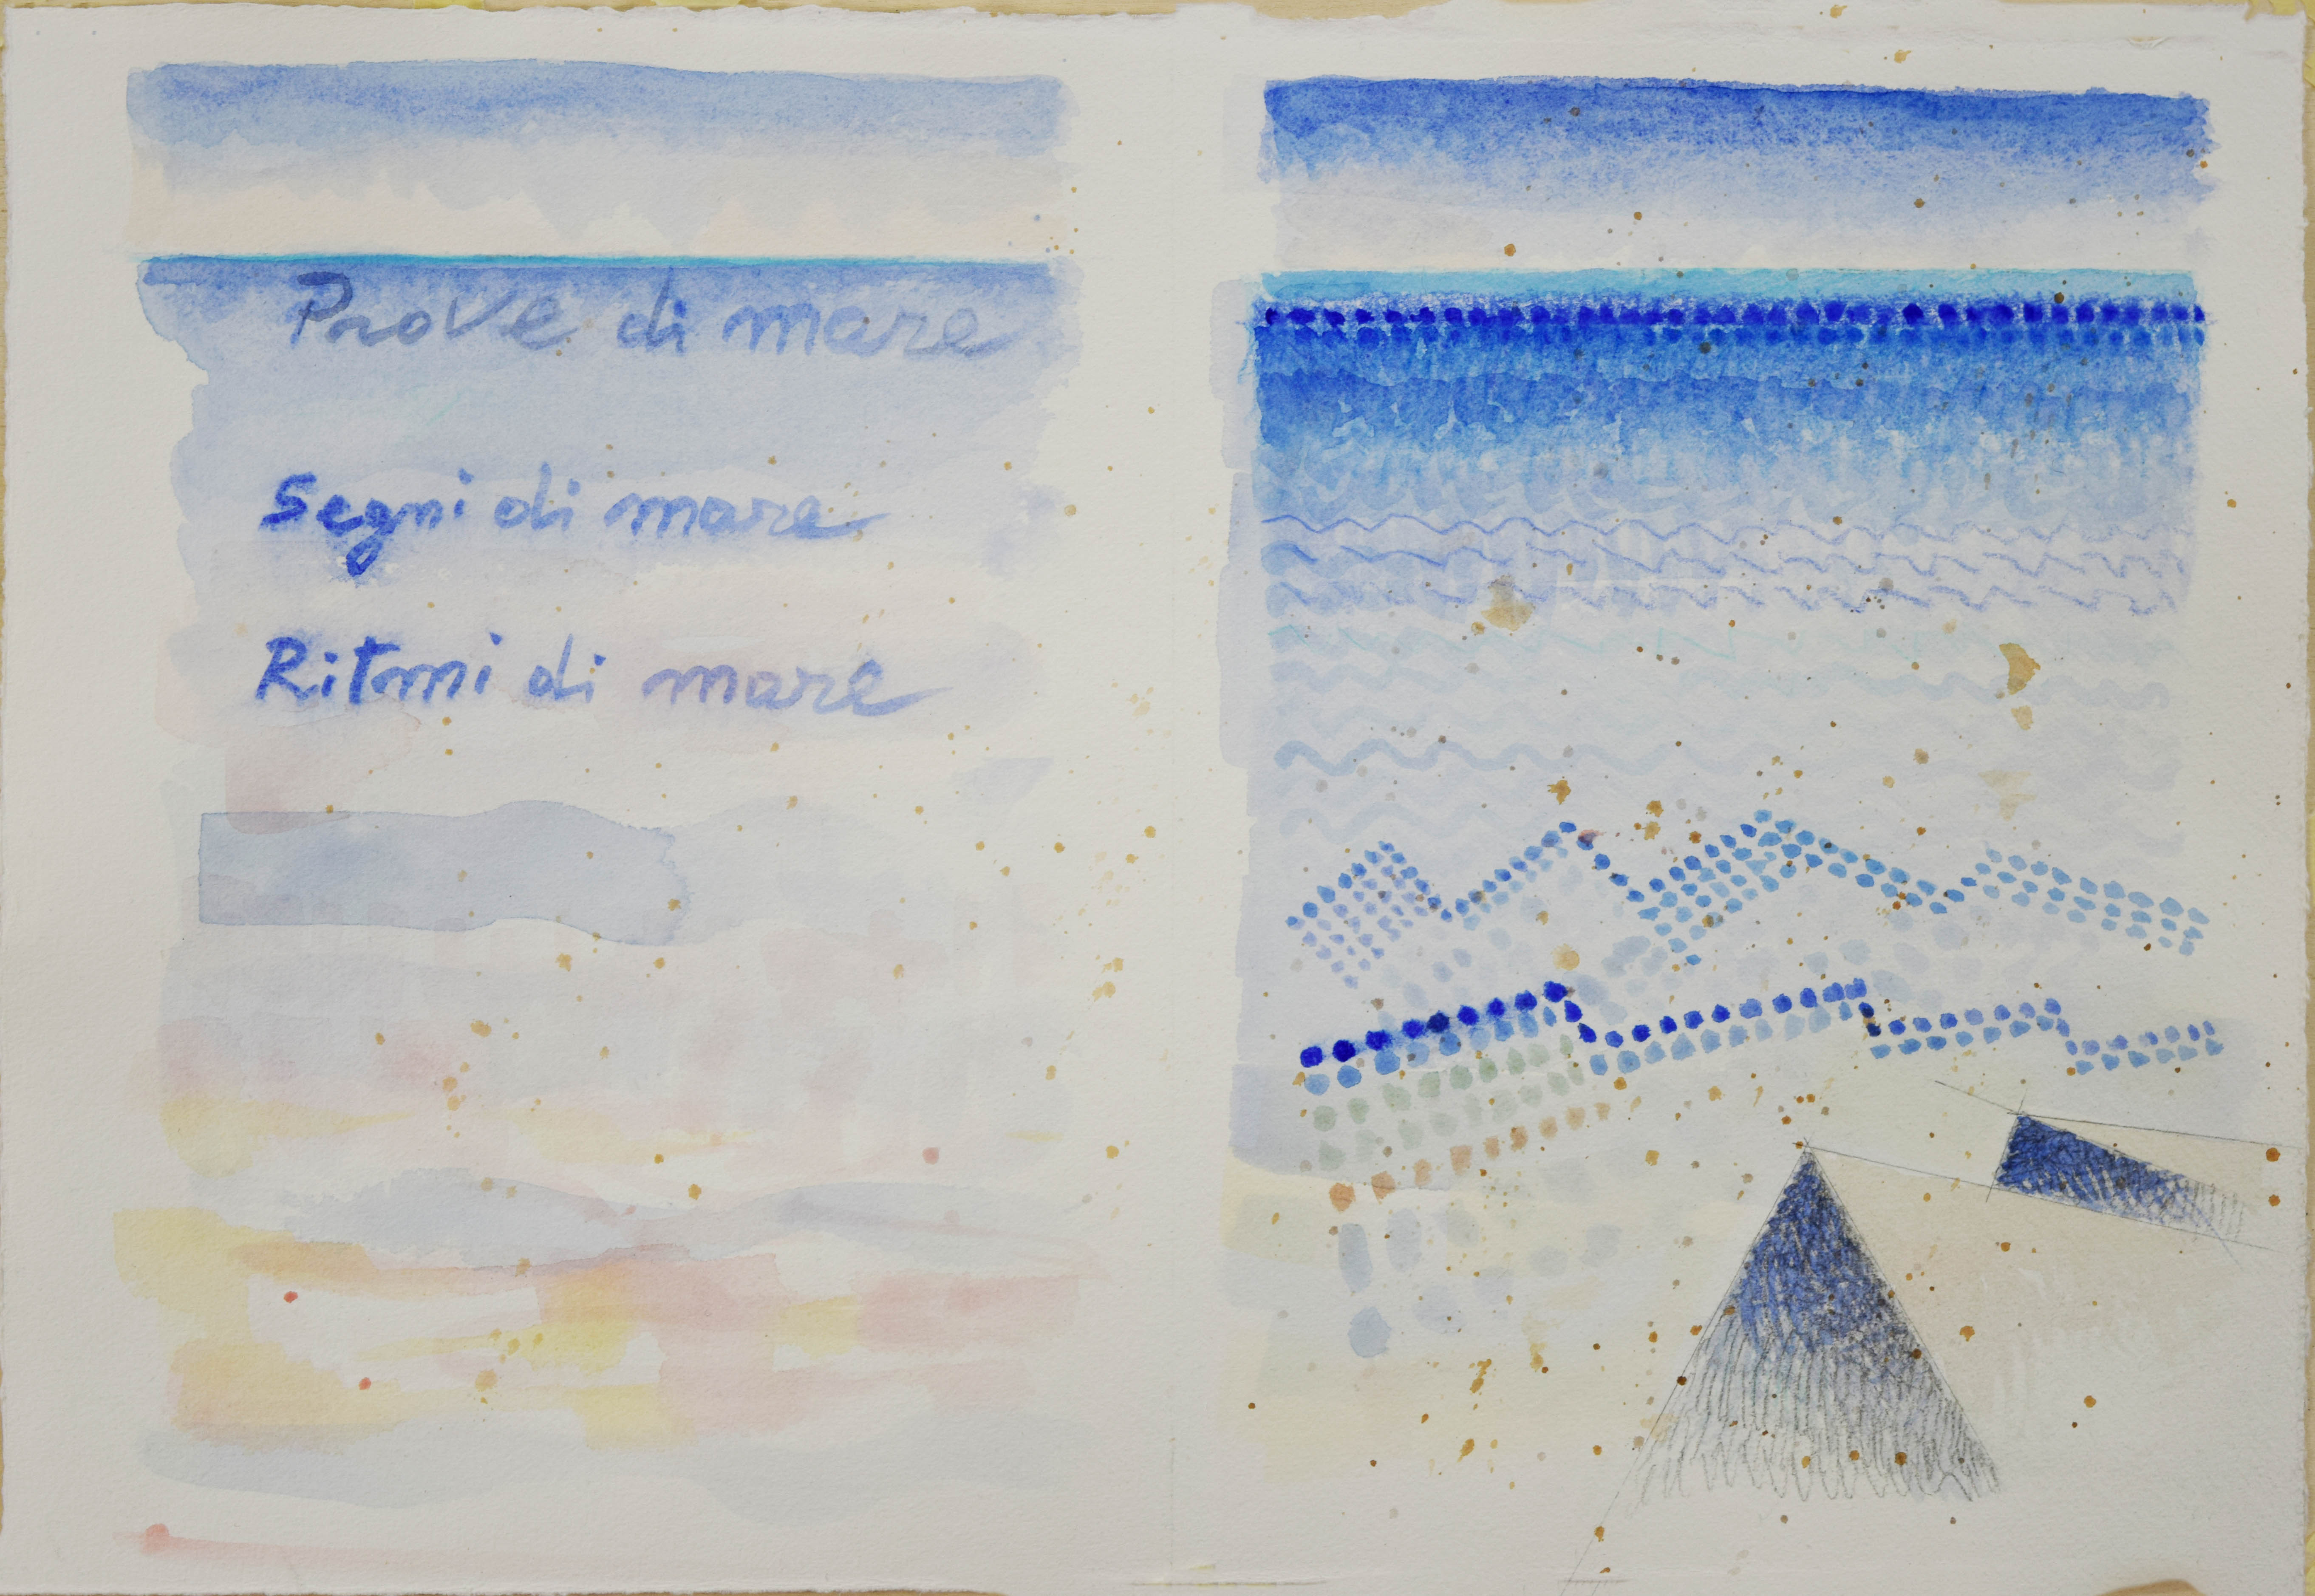 Prove di mare
Segni di mare
Ritmi di mare